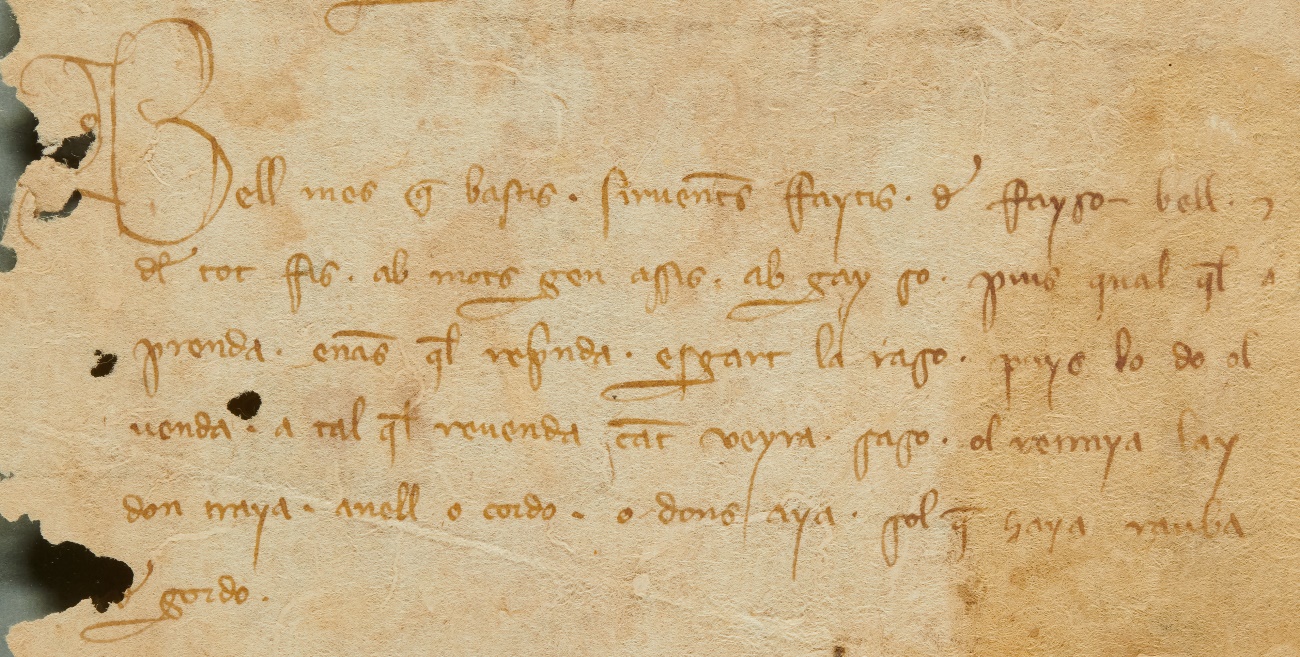 Bell mes q̄ bastis . siruent̄s ffaytis . d' ffayso bell . ⁊
del tot ffis . ab mots gen assis . ab gay so . puis qual q̄l
prenda . enās q̄l rep̄nda . esgart la raso . puys lo do ol
uenda . a cal q̄l reuenda cāt veyra saso . ol remaya lay
don traya . anell o cordo . o dons aya . sol q̄ haya rauba
gordo .